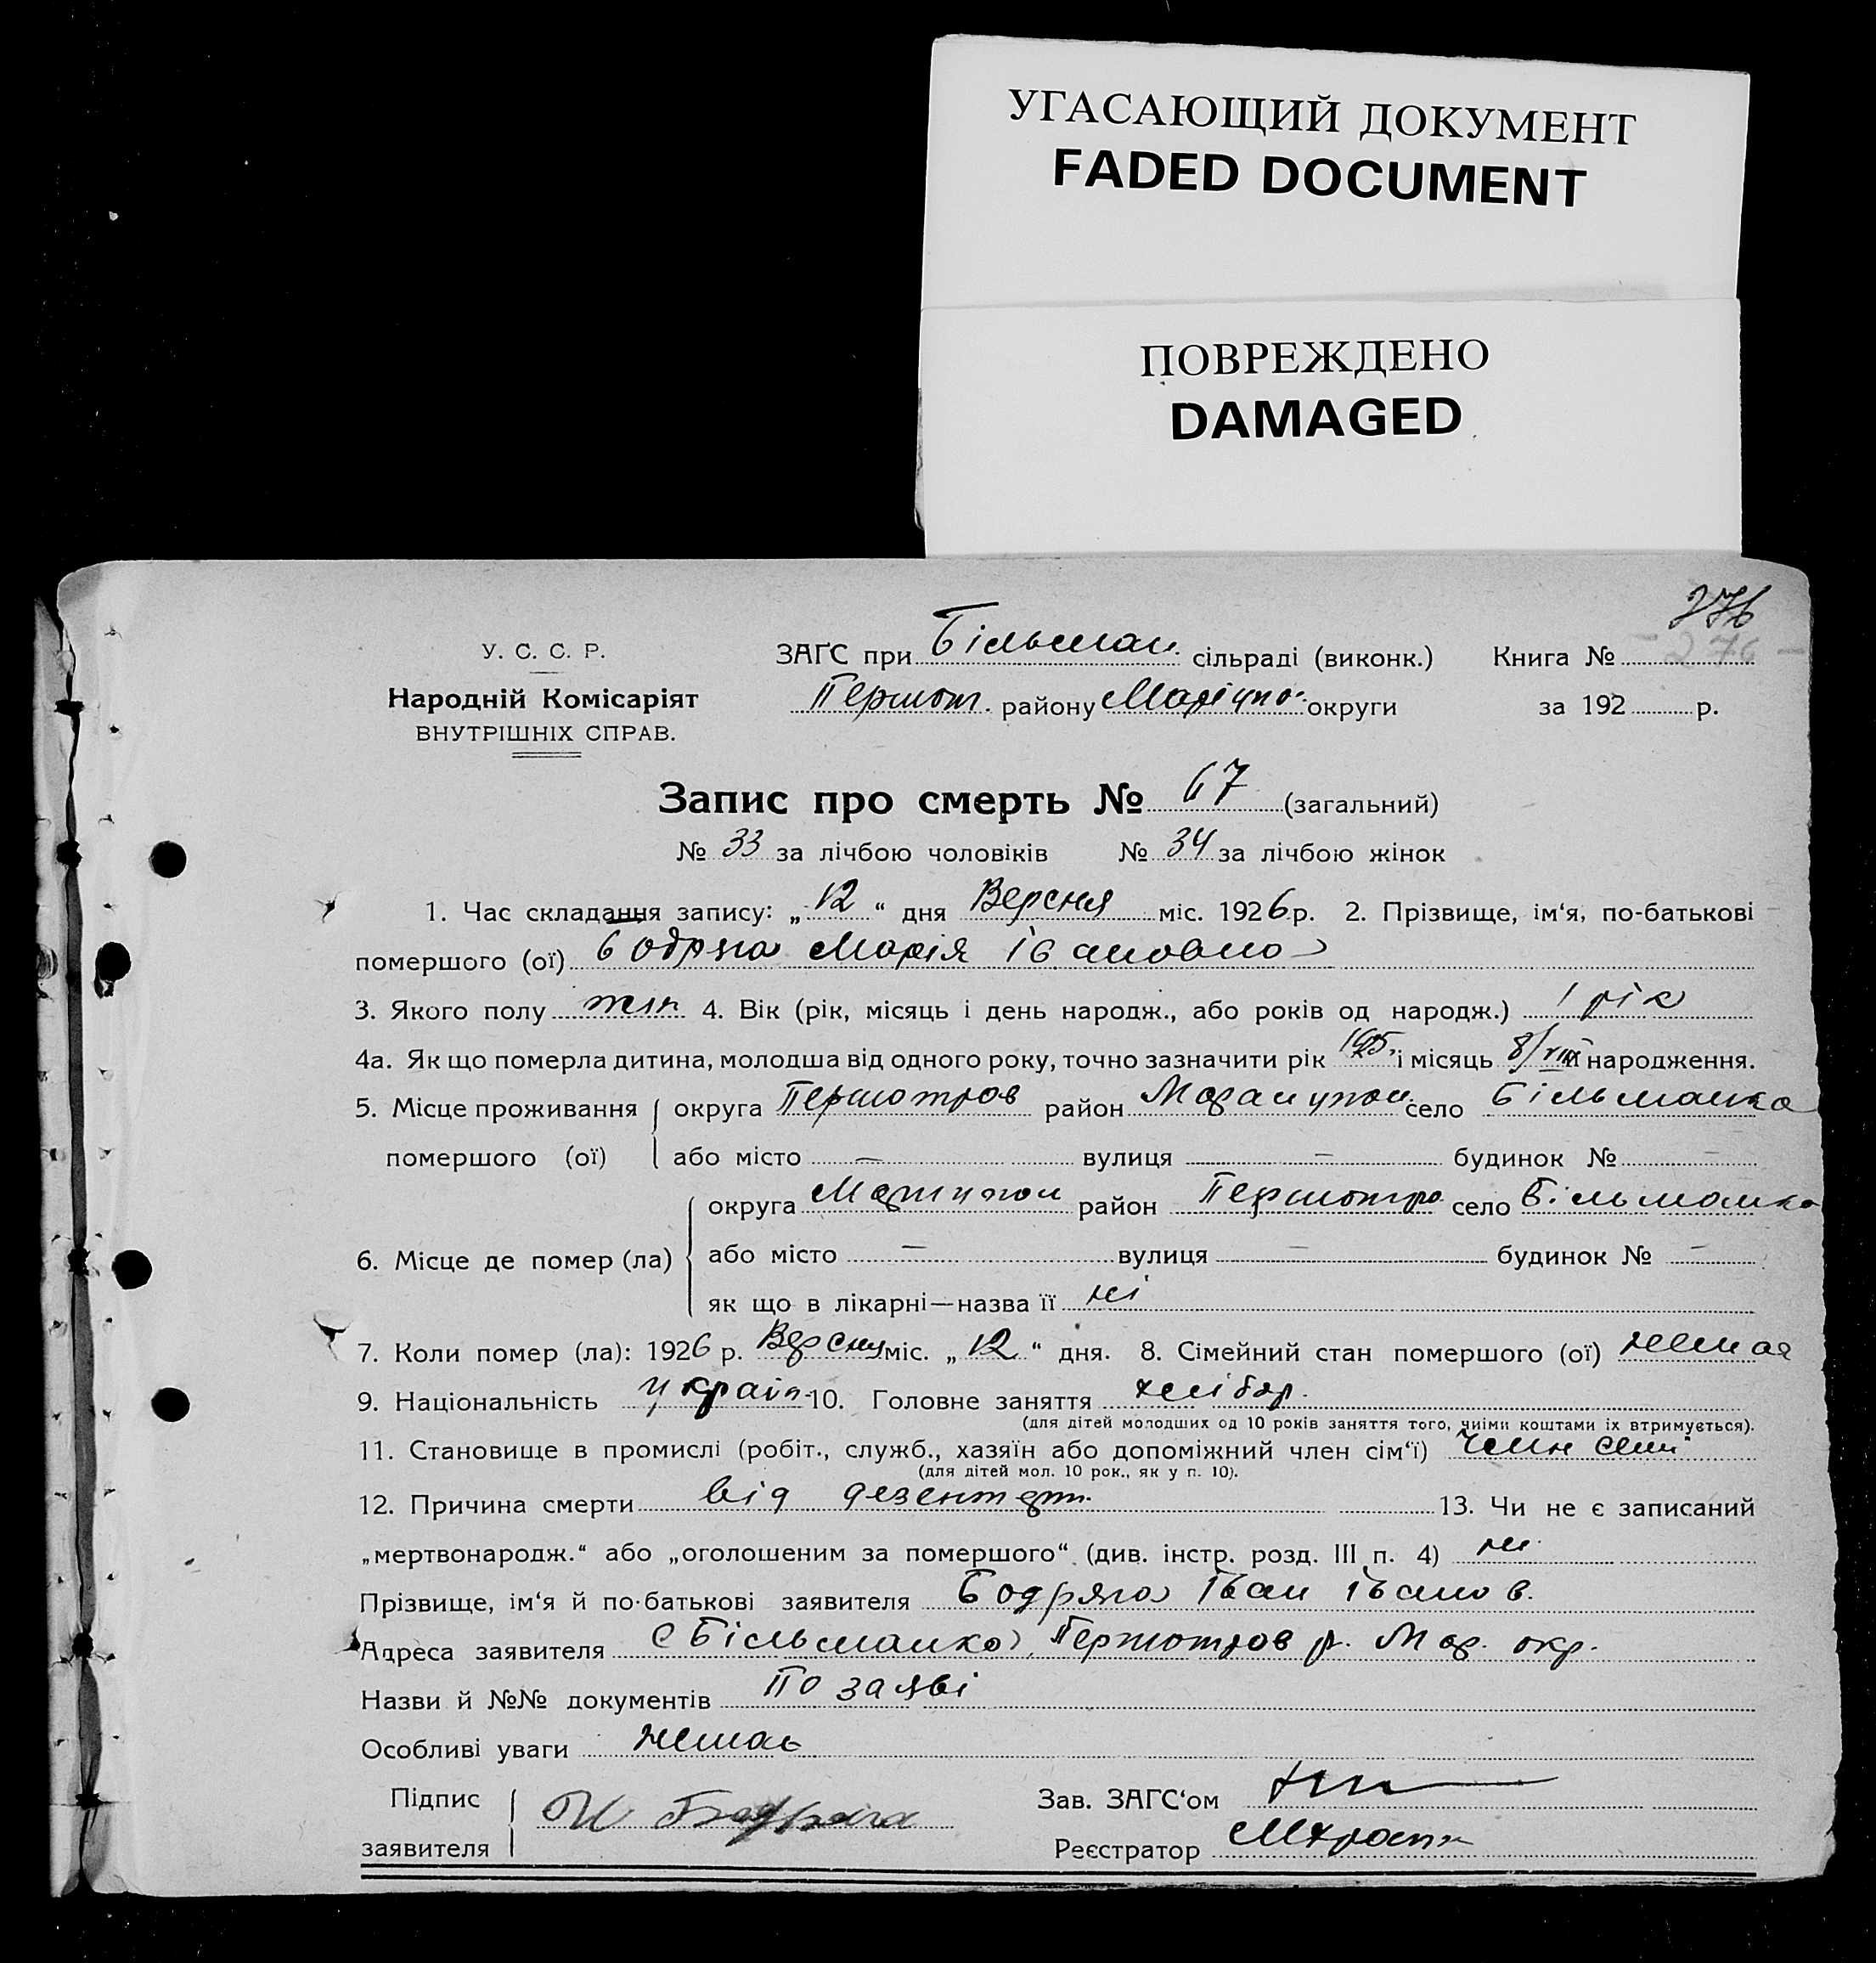 УГАСАЮЩИЙ ДОКУМЕНТ
FADED DOCUMENT
ПОВРЕЖДЕНО
DAMAGED
276
У. С. С. Р. ЗАГС при Більман. сільраді (виконк.) Книга № 276
Народній Комісаріят Першот. району Маріупо. округи за 192 р.
ВНУТРІШНІХ СПРАВ.
Запис про смерть № 67 (загальний)
№ 33 за лічбою чоловіків № 34 за лічбою жінок
1. Час складання запису: „12“ дня Версня міс. 1926 р. 2. Прізвище, ім‘я, по-батькові
помершого (ої) Бодряга Марія Івановна
3. Якого полу жін 4. Вік (рік, місяць і день народж., або років од народж.) 1 рік
4а. Як що померла дитина, молодша від одного року, точно зазначити рік 1925 і місяць 8/VIII народження.
5. Місце проживання округа Першотров район село Більманка
помершого (ої) або місто — вулиця — будинок № —
округа Маріупол район Першотро село Більманка
6. Місце де помер (ла) або місто — вулиця — будинок № —
як що в лікарні—назва її ні
7. Коли помер (ла): 1926 р. Версня міс. „12“ дня. 8. Сімейний стан помершого (ої)
9. Національність україн. 10. Головне заняття хлібор.
(для дітей молодших од 10 років заняття того, чиїми коштами їх втримується).
11. Становище в промислі (робіт., служб., хазяїн або допоміжний член сім‘ї) член сем
(для дітей мол. 10 рок., як у п. 10).
12. Причина смерти від дезентерт. 13. Чи не є записаний
„мертвонародж.“ або „оголошеним за помершого“ (див. інстр. розд. III п. 4) ні
Прізвище, ім‘я й по-батькові заявителя Бодряга Іван Іванов.
Адреса заявителя с Більманка, Першотров р. Мар. окр.
Назви й №№ документів По заяві
Особливі уваги немає
Підпис Зав. ЗАГС‘ом
заявителя И Бодряга Реєстратор